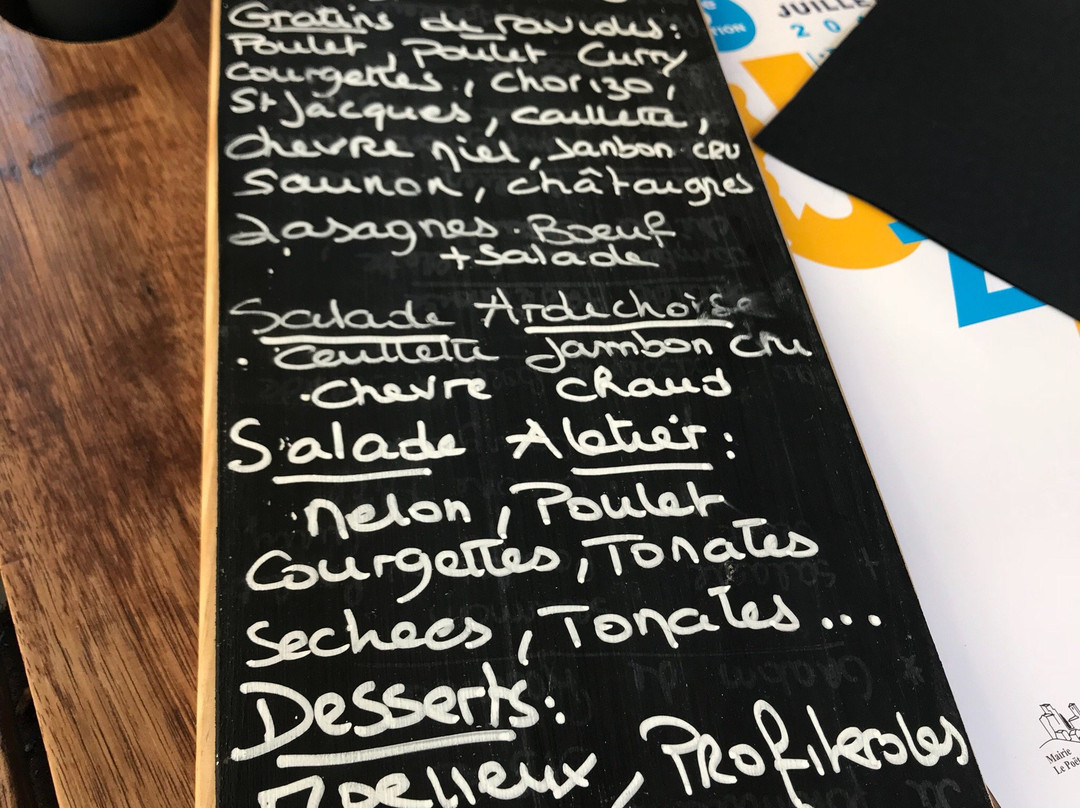 Gratins de ravioles:
Poulet, Poulet Curry
Courgettes, Chorizo,
St Jacques, caillette,
Chevre miel, Janbon cru
Saumon, châtaignes
Lasagnes. Boeuf
+ Salade
Salade Ardechoise
. Ceullette Jambon cru
. Chevre chaud
Salade Atelier:
Melon, Poulet
Courgettes, Tomates
Sechees, Tomates...
Desserts:
Moelleux, Profiteroles
JUILLE
20
Mairie
Le Poët